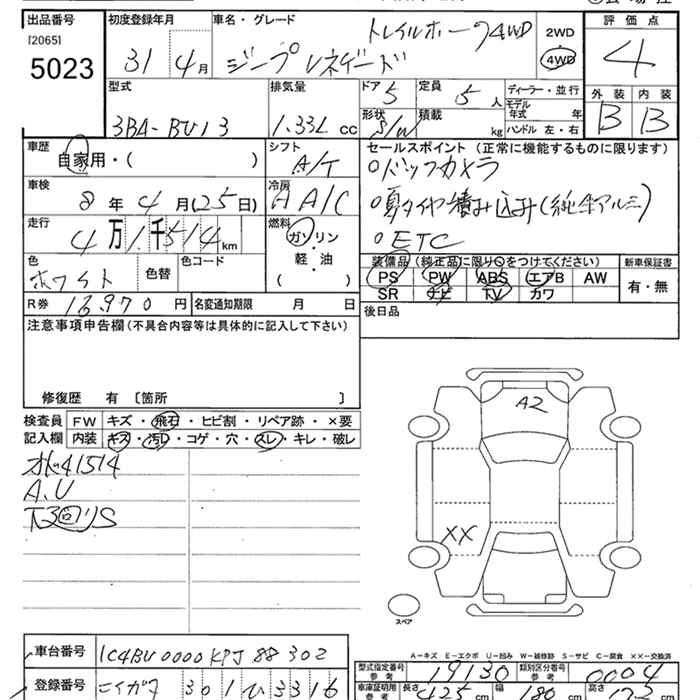 出品番号 初度登録年月 車名・グレード 評価点
[2065] トレイルホーク4WD 2WD
5023 31 4月 ジープレネゲード 4WD 4
型式 排気量 ドア 5 定員 5人 ディーラー・並行 外装 内装
3BA-BU13 1.33L cc 形状 S/W 積載 kg モデル年式 年 B B
ハンドル 左・右
車歴 シフト セールスポイント(正常に機能するものに限ります)
自家用・( ) A/T ○バックカメラ
車検 冷房
8年4月(25日) AA/C ○夏タイヤ積み込み(純正アルミ)
走行 燃料
4万1千514km ガソリン ○ETC
色 色替 色コード ・軽・油 装備品(純正品)に限り○をつけてください 新車保証書
ホワイト ( ) PS PW ABS エアB AW 有・無
R券 13,970円 名変通知期限 月 日 SR ナビ TV カワ
注意事項申告欄(不具合内容等は具体的に記入して下さい) 後日品
修復歴 有 [箇所 ]
検査員 FW キズ・飛石・ヒビ割・リペア跡・×要
記入欄 内装 キズ・汚レ・コゲ・穴・スレ・キレ・破レ
A2
41514
A.U
XX
スペア
A-キズ E-エクボ U-凹み W-補修跡 S-サビ C-腐食 XX-交換済
車台番号 1C4BU0000KPJ88302 型式指定番号 参考 19130 類別区分番号 参考 0004
登録番号 ニイガタ 301 ひ 3316 車庫証明用 参考 長さ 425cm 幅 180cm